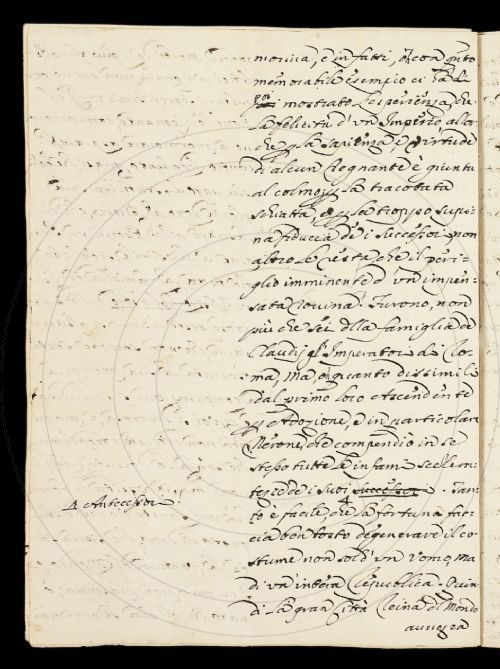 moriva, e in fatti, o con q.to
memorabile esempio ci ha di
poi mostrato l'esperienza che
la felicità d'un Impero allor
che p la sapienza, e virtude
di alcun Regnante è giunta
al colmo, p la tracotata
schiatta, e p la troppo supi-
na fiducia de i successori non
altro le resta, che il peri-
glio imminente d'un impen-
sata rovina. Furono, non
più che sei della famiglia de
Claudij gl'Imperatori di Ro-
ma, ma o quanto dissimili
dal primo loro Ascendente
p Adozione, e in particolare
Nerone, che compendiò in se
stesso tutte le infami scelle-
tezze de i suoi successori. Tan-
Δ Antecessori
to è facile che la fortuna fac-
cia ben tosto degenerare il co-
stume non sol d'un Uomo, ma
di un intera Republica. Quin-
di la gran Città Reina del Mondo
avvezza